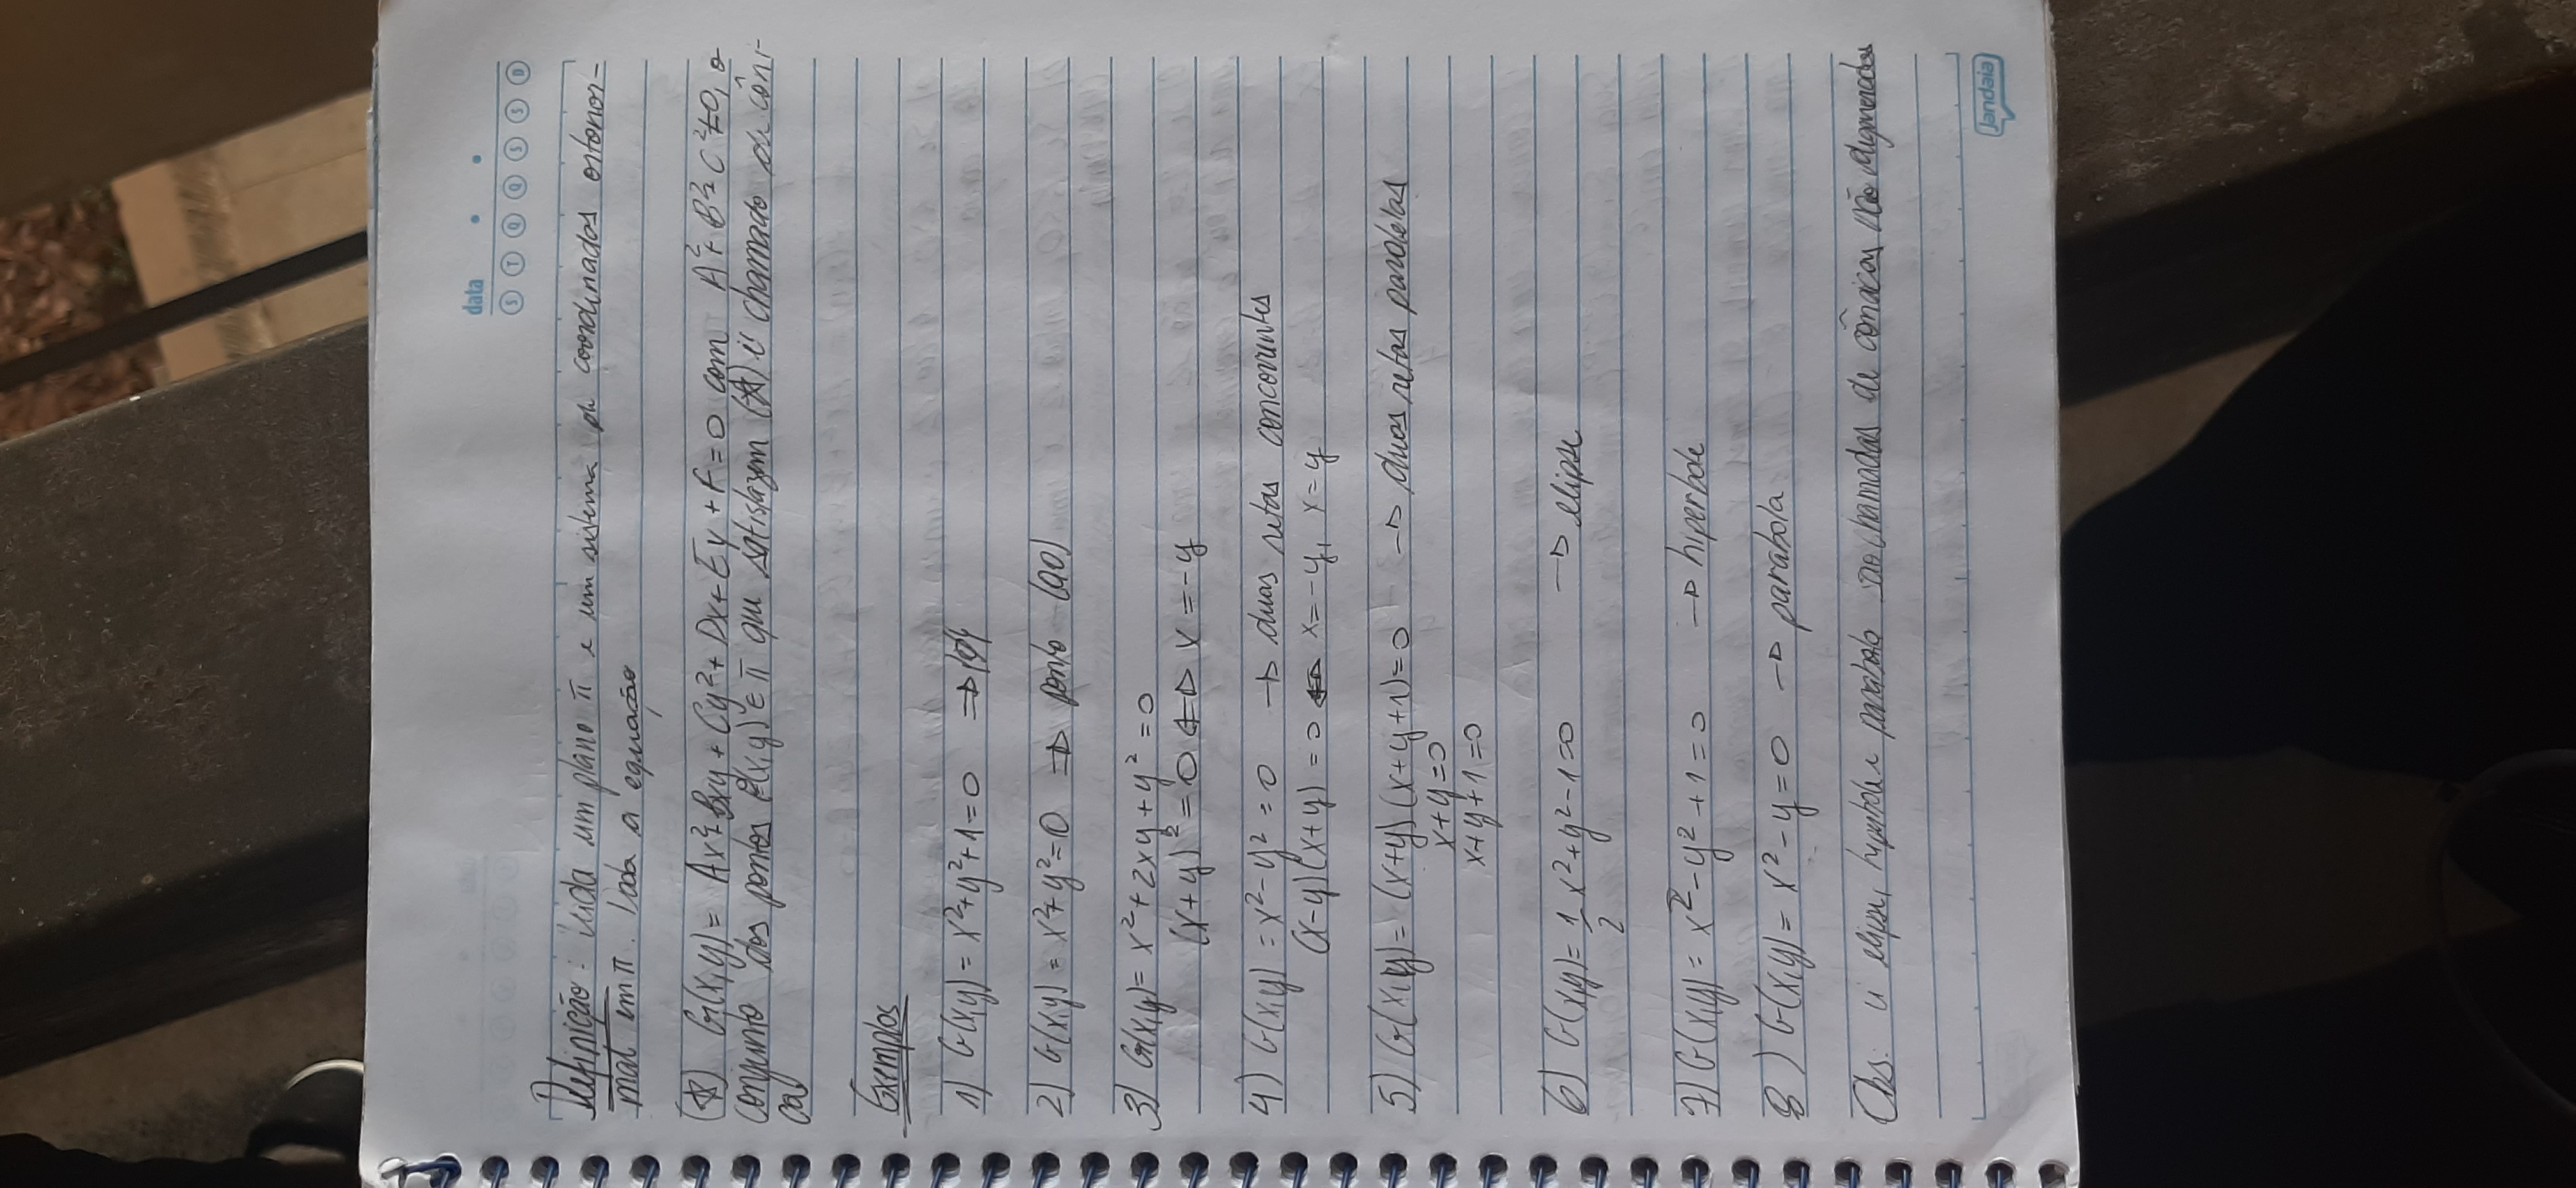 data
S T Q Q S S D
Definição: dada um plano π e um sistema de coordenadas ortonor-
mal em π. Dada a equação
(☆) G(x,y) = Ax²+Bxy+Cy²+Dx+Ey+F=0 com A²+B²+C²≠0, o
conjunto dos pontos P(x,y) ∈ π que satisfazem (☆) é chamado de côni-
ca
Exemplos
1) G(x,y) = x²+y²+1=0 ⇒
2) G(x,y) = x²+y²=0 ⇒ ponto (0,0)
3) G(x,y) = x²+2xy+y²=0
(x+y)²=0 ⇔ x=-y
4) G(x,y) = x²-y²=0 → duas retas concorrentes
(x-y)(x+y)=0 ⇔ x=-y, x=y
5) G(x,y) = (x+y)(x+y+1)=0 → duas retas paralelas
x+y=0
x+y+1=0
6) G(x,y) = 1/2 x²+y²-1=0 → elipse
7) G(x,y) = x²-y²+1=0 → hiperbole
8) G(x,y) = x²-y=0 → parabola
Obs: elipse, hiperbole e parabola são chamadas de cônicas não degeneradas
Jandaia